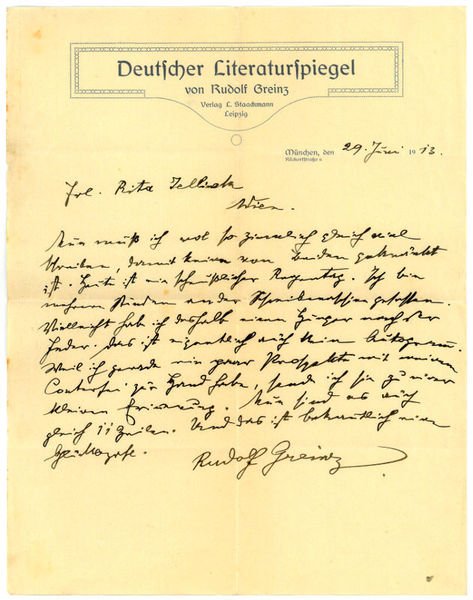 Deutscher Literaturspiegel
von Rudolf Greinz
Verlag L. Staackmann
Leipzig
München, den 29. Juni 1913.
Rückertstraße
Frl. Rita Jellinek
Wien.
Nun muß ich wol so ziemlich gleich viel
schreiben, damit keine von beiden gekränkt
ist. Heute ist ein scheußlicher Regentag. Ich bin
mehrere Stunden an der Schreibmaschine gesessen.
Vielleicht hab ich deshalb einen Hunger nach der
Feder. Das ist eigentlich auch kein Autogramm.
Weil ich gerade ein paar Prospekte mit meinem
Conterfei zur Hand habe, send ich sie zu einer
kleinen Erinnerung. Nun sind es auch
gleich 11 Zeilen. Und das ist bekanntlich eine
Rudolf Greinz